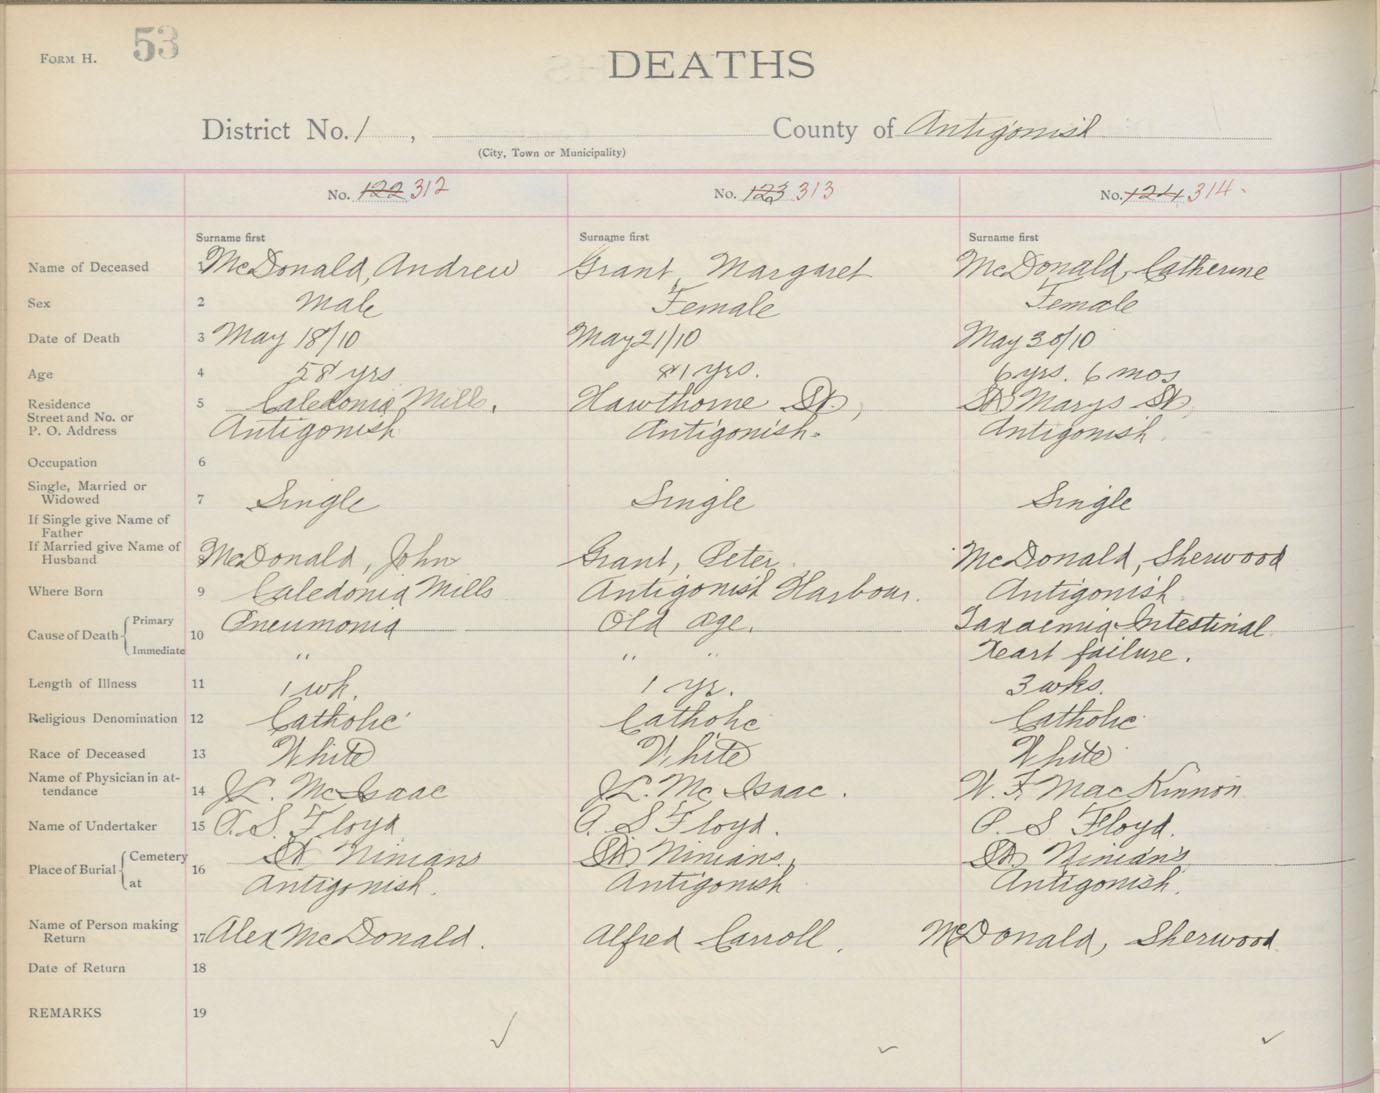 FORM H. 53
DEATHS
District No. 1 , County of Antigonish
(City, Town or Municipality)
No. 122 312 No. 123 313 No. 124 314
Surname first Surname first Surname first
Name of Deceased 1 McDonald, Andrew Grant, Margaret McDonald, Catherine
Sex 2 Male Female Female
Date of Death 3 May 18/10 May 21/10 May 30/10
Age 4 58 yrs 81 yrs. 6 yrs. 6 mos
Residence 5 Caledonia Mills, Hawthorne St, St Marys St
Street and No. or
P. O. Address Antigonish Antigonish. Antigonish.
Occupation 6
Single, Married or
Widowed 7 Single Single Single
If Single give Name of
Father
If Married give Name of
Husband 8 McDonald, John Grant, Peter McDonald, Sherwood
Where Born 9 Caledonia Mills Antigonish Harbour. Antigonish.
Cause of Death Primary 10 Pneumonia Old Age. Intestinal
Immediate " " " Heart failure.
Length of Illness 11 1 wk. 1 yr. 3 wks.
Religious Denomination 12 Catholic Catholic Catholic
Race of Deceased 13 White White White
Name of Physician in at-
tendance 14 J.L. McIsaac J.L. McIsaac. W. F. MacKinnon
Name of Undertaker 15 P. S. Floyd P. S Floyd. P. S Floyd.
Place of Burial Cemetery 16 St Ninians St Ninians, St Ninian's
at Antigonish. Antigonish Antigonish.
Name of Person making
Return 17 Alex McDonald. Alfred Carroll. McDonald, Sherwood
Date of Return 18
REMARKS 19